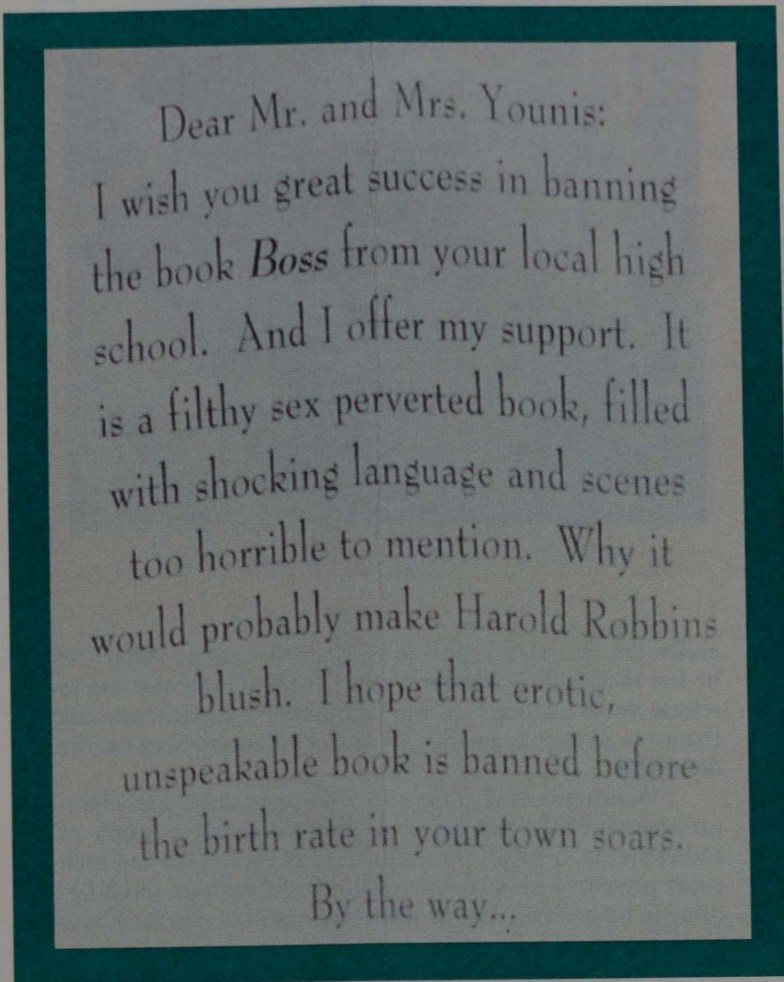 Dear Mr. and Mrs. Younis:
I wish you great success in banning
the book Boss from your local high
school. And I offer my support. It
is a filthy sex perverted book, filled
with shocking language and scenes
too horrible to mention. Why it
would probably make Harold Robbins
blush. I hope that erotic,
unspeakable book is banned before
the birth rate in your town soars.
By the way...